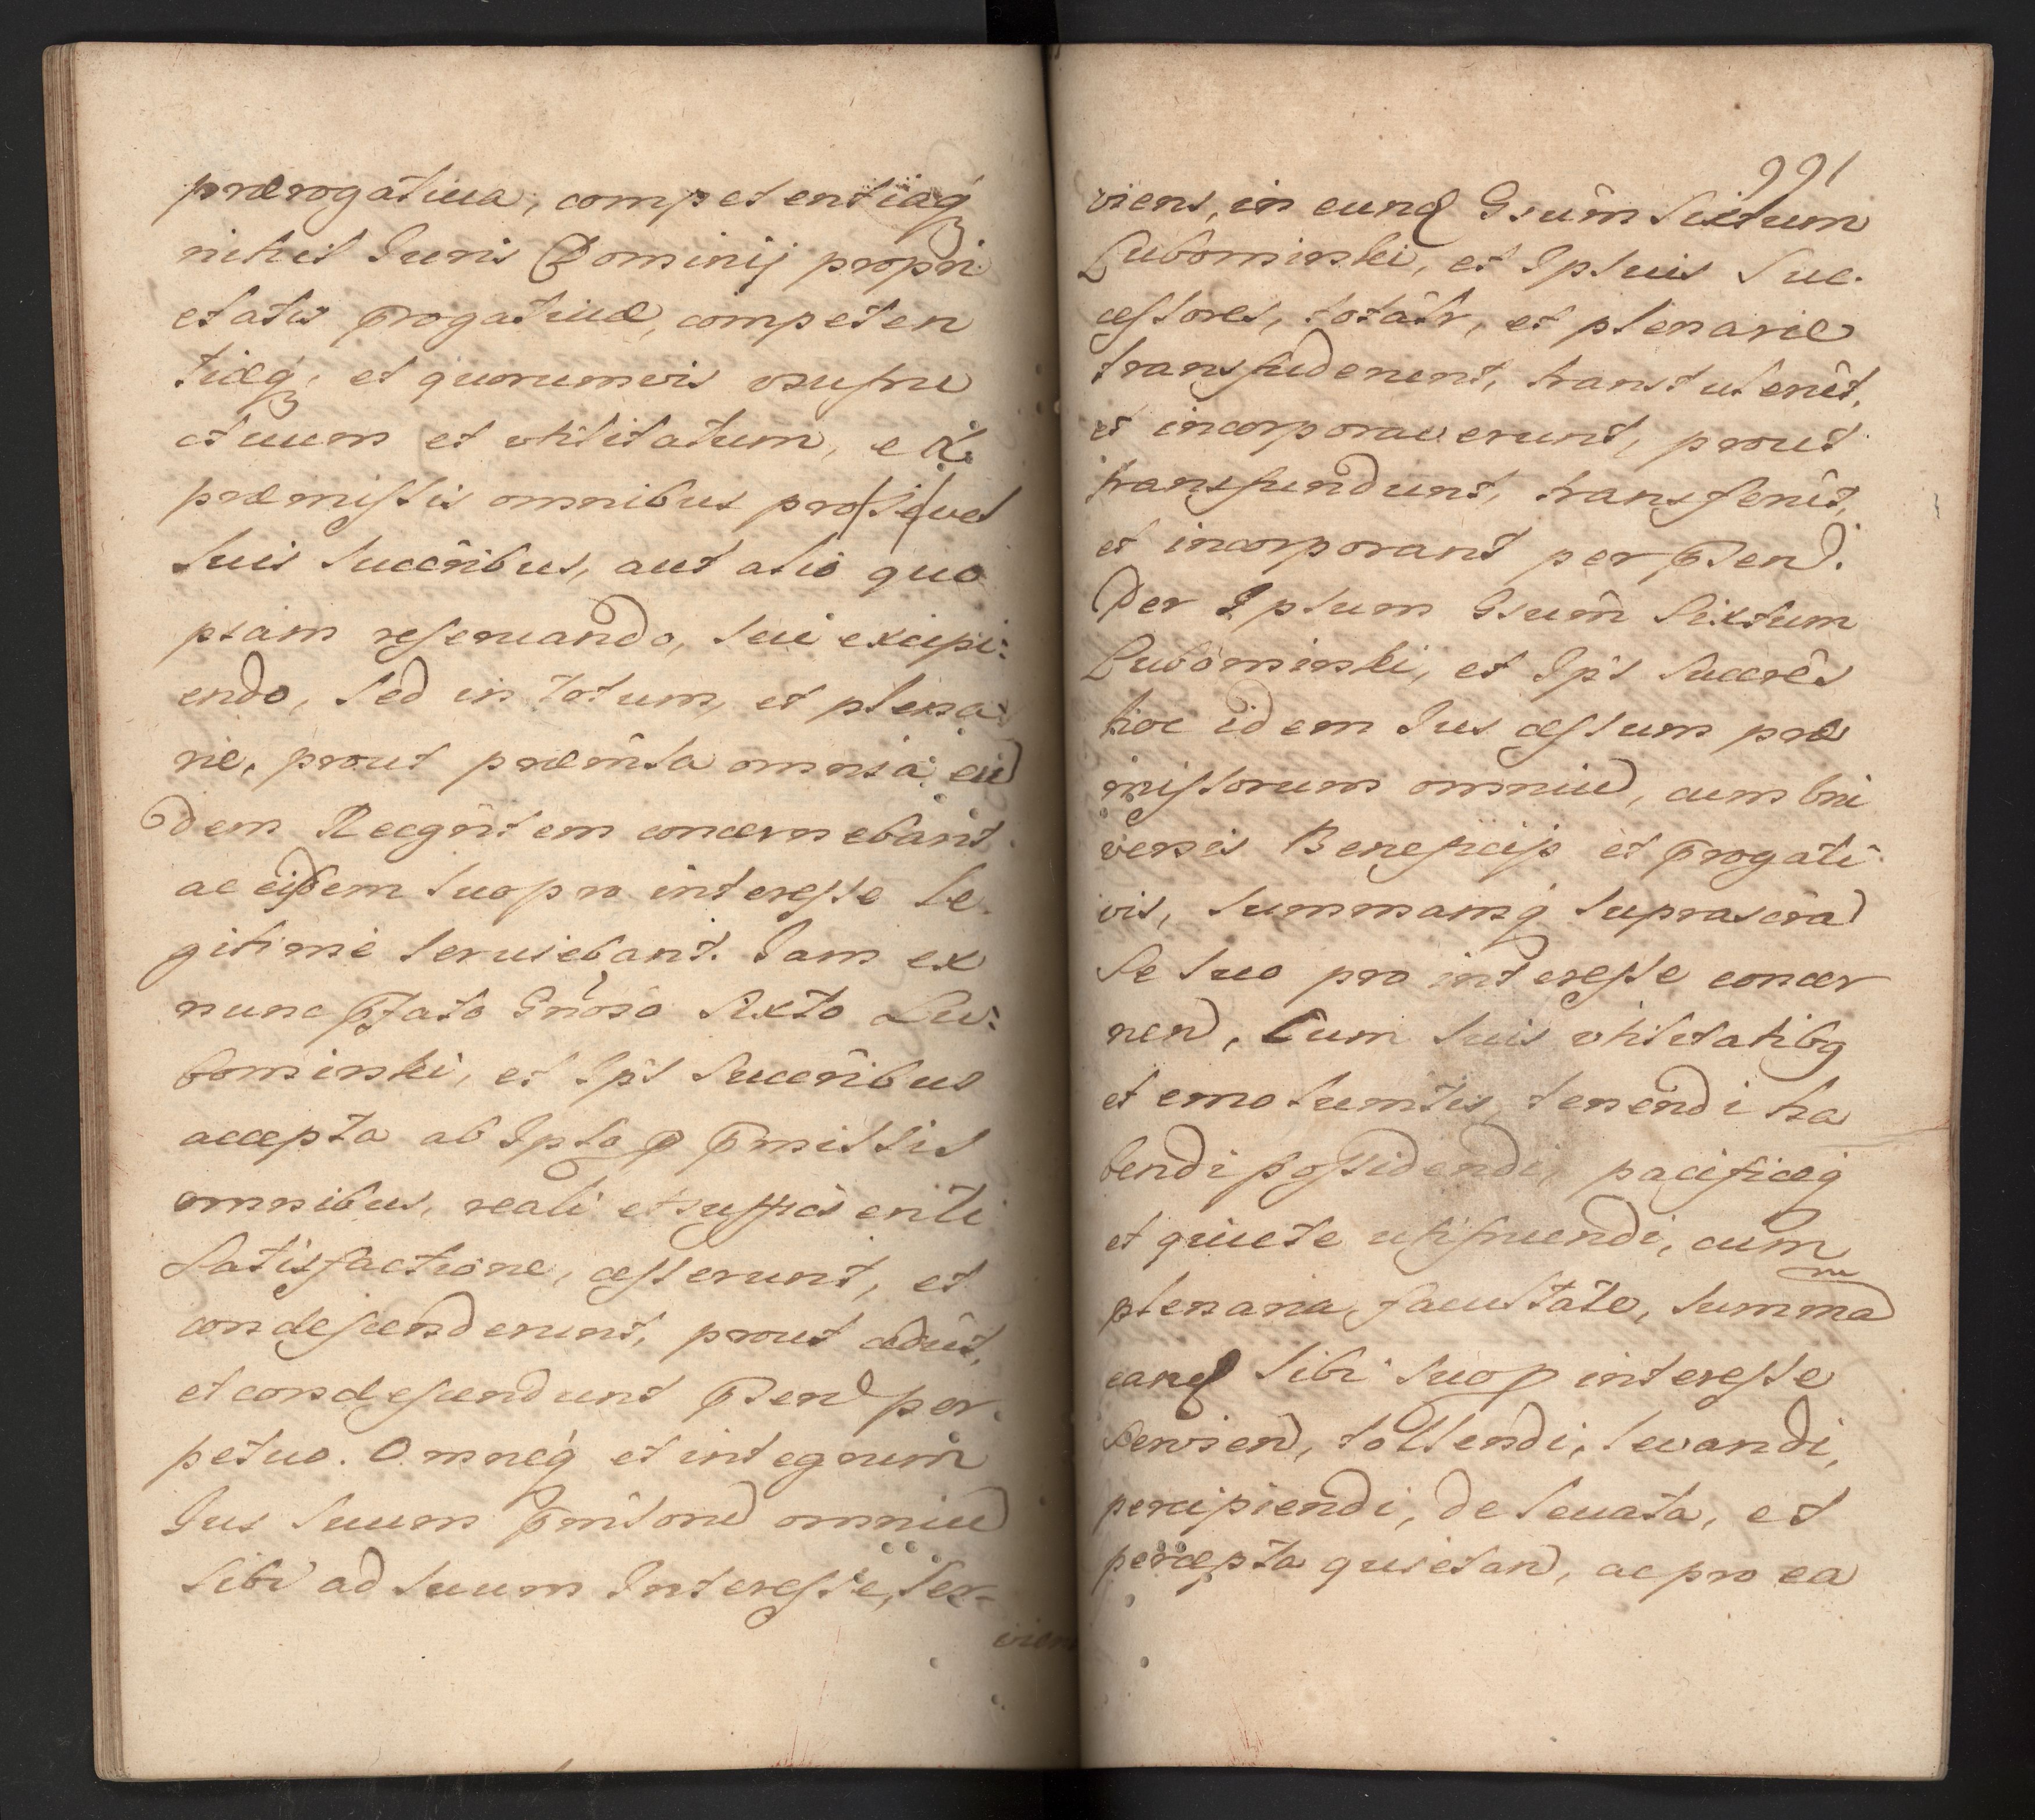 prærogatiua, competentiaq́
nihil Iuris Dominij propri
etatis p̄rogatiuæ, competen
tiæq́, et quorumvis vsufru
ctuum et vtilitatum, ex
præmissis omnibus pro se vel
suis succribus, aut alio quo
piam reseruando, seu excipi:
endo, sed in totum, et plena
rie, prout præmssa omnia eū
dem Recgntem concernebant
ac eidem suo pro interesse le
gitime seruiebant. Iam ex
nunc p̄fato Gnoso Sixto Lu:
bominski, et Ips succribus
accepta ab Ipso p p̄missis
omnibus, reali et sufficienti
satisfactione, cesserunt, et
condescenderunt, prout cedut,
et condescendunt p̄sen per
petuo. Omneq́ et integrum
Ius suum p̄mssoru omniu
sibi ad suum Interesse, ser-
viens
991
viens, in eund Gsûm Sixtum
Lubominski, et Ipsius suc.
cessores, totâlr, et plenarie
transfuderunt, transtulerût,
et incorporauerunt, prout
transfundunt, transferût,
et incorporant per p̄sen.
Per Ipsum Gsûm Sixtum
Lubominski, et Ips succrês
hoc idem Ius cessum præ
missorum omniu, cum vni
versis Beneficijs et p̄rogati
vis, summamq́ suprascra
se suo pro interesse concer
nen, Cum suis vtilitatibq
et emolumtis, tenendi ha
bendi possidendi, pacificeq́
et quiete utifruendi, cum
plenaria facultate, summa
m
eand sibi suo p interesse
servien, tollendi, levandi,
percipiendi, de leuata, et
percepta quietan, ac pro ea